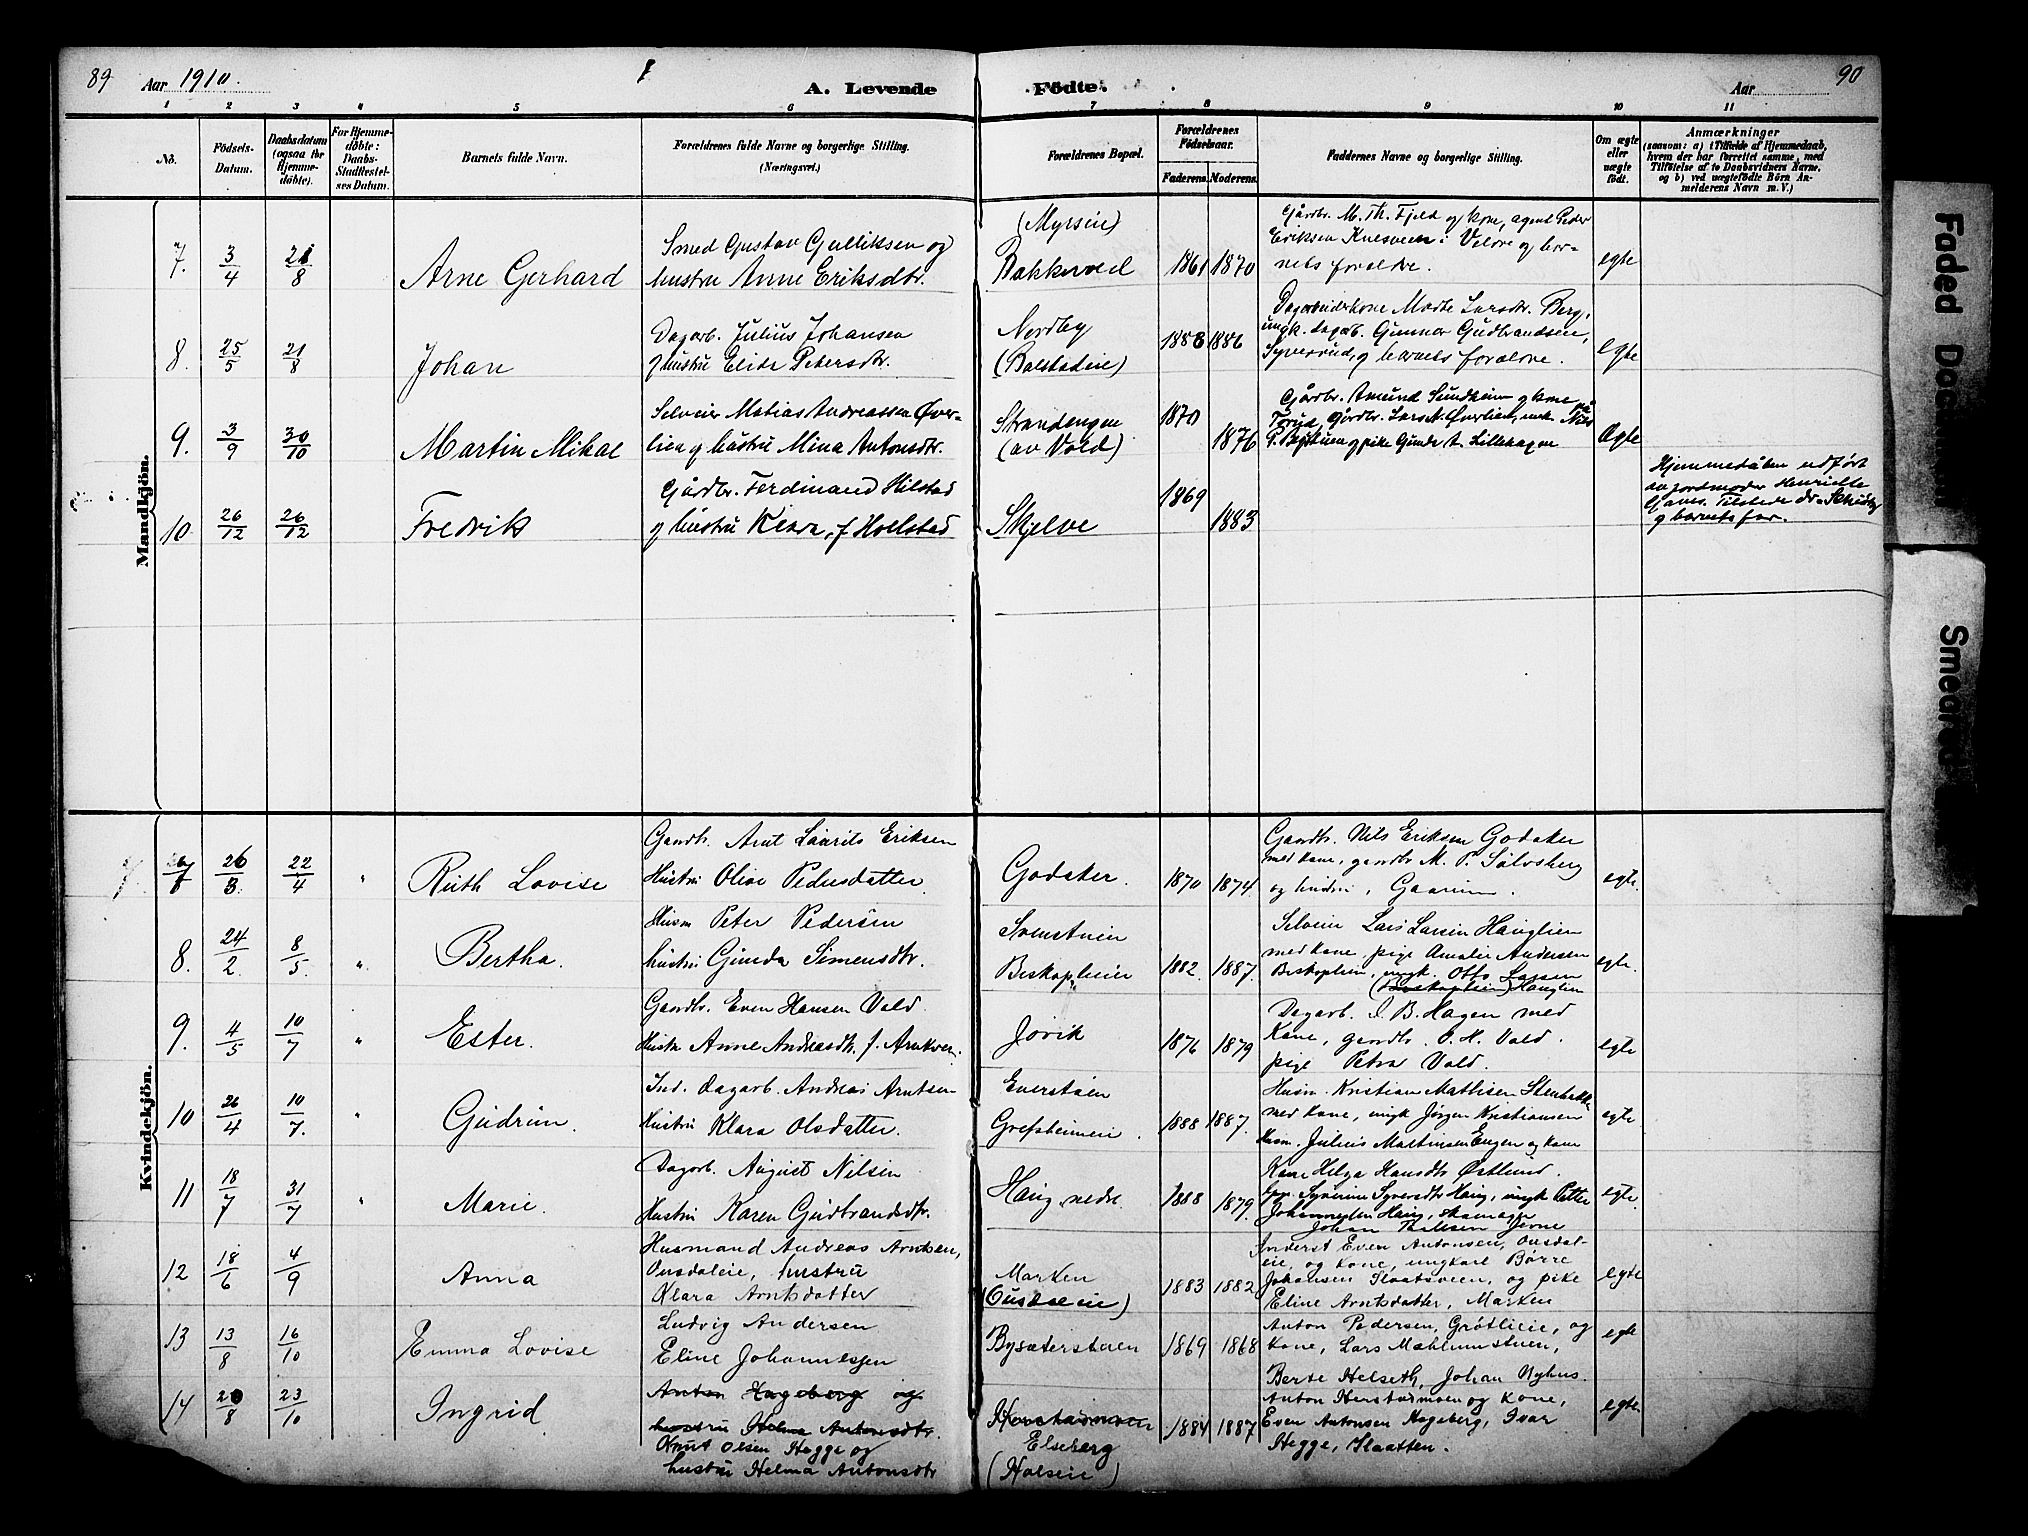 89 Aar 1910. A. Levende Fødte. Aar 90
1 2 3 4 5 6 7 8 9 10 11
No. Fødsels-Datum. Daabsdatum (ogsaa for Hjemmedøbte). For Hjemmedøbte: Daabs-Stadfestelses Datum. Barnets fulde Navn. Forældrenes fulde Navne og borgerlige Stilling. (Næringsvei.) Forældrenes Bopæl. Forældrenes Fødselsaar. Faderens. Moderens. Faddernes Navne og borgerlige Stilling. Om ægte eller uægte født. Anmærkninger
(saasom: a) i Tilfælde af Hjemmedaab,
hvem der har forrettet samme, med
Tilføielse af to Daabsvidners Navne,
og b) ved uægtefødte Børn Anmelderens Navn m. V.)
Mandkjøn.
7. 3/4 21/8 Arne Gerhard
Smed Gustav Gulliksen og
hustru Anne Eriksdtr.
(Myrsein)
Bakkerud 1861 1870
Gårdbr. M. Th. Fjeld og kone, agent Peder
Eriksen i Velve og bar-
nets forældre. egte
8. 25/5 21/8 Johan
Dagarb. Julius Johansen
og hustru Elide Petersdtr.
Nordby
(Balstadeie) 1883 1886
Dagarbeiderkone Marte Larsdtr. Berg,
ungk. dagarb. Gunnar Gudbrandsen,
Syverud, og barnets forældre. egte
9. 3/9 30/10 Martin Mikal
Selveier Matias Andreassen Øver-
lien og hustru Mina Antonsdtr.
Strandengen
(av Vold) 1870 1876
Gårdbr. Amund Sundheim og kone
Gårdbr. Lars A. Øverlien, unk. Nils
og pike Gunda A. Lillehagen Ægte
10 26/12 26/12 Fredrik
Gårdbr. Ferdinand Hilstad
og hustru Klara, f. Hoelstad
Skjelve 1869 1883
Hjemmedåben udført
av jordmoder Henriette
Tilstede
og barnets far.
Kvindekjøn.
7 26/3 22/4 " Ruth Lovise
Gaardbr. Arnt Laurits Eriksen
Hustru Oline Pedersdatter.
Godaker. 1870 1874.
Gaardbr. Nils Eriksen Godaker
med kone, gaardbr M. P. Sølvsberg
og hustru, Gaarum. egte.
8. 24/2. 8/5. " Bertha.
Husm Peter Pedersen
hustru Gunda Simensdtr.
Svenstueie
Biskoplieie 1882. 1887.
Selveier Lars Larsen Hauglien
med kone, pige Amalie Andersen
Biskoplein, ungk. Otto Larsen
(Biskoplien) Hauglien egte.
9. 4/5 10/7 " Ester.
Gaardbr. Even Hansen Vold.
Hustr Anne Andreasdtr. f. Arnkvern.
Jøvik 1876 1879
Dagarb. O. B. Hagen med
Kone, gaardbr. O. H. Vold.
pige Petra Vold. egte
10 26/4 10/7. " Gudrun.
Ind. dagarb. Andreas Arntsen
Hustru Klara Olsdatter.
Everstuen
Grefsheimeie. 1888 1887.
Husm. Kristian Mathisen Stenbakke
med kone, ungk Jørgen Kristiansen
Husm. Julius Martinsen Engen og kone egte.
11 18/7 31/7 " Marie.
Dagarb. August Nilsen
Hustru Karen Gudbrandsdtr.
Haug nedre 1888 1879.
Kone Helga Hansdtr Østlund.
Syverine Syversdtr Haug, ungk Petter
Johannessen Haug, skomager
Johan Jevne egte.
12 18/6 4/9 Anna
Husmand Andreas Arntsen,
Ousdaleie, hustru
Klara Arntsdatter
Marken
(Ousdaleie) 1883 1882
Inderst Even Antonsen, Ousdal-
eie, og kone, ungkarl Børre
Johansen Slaatsveen, og pike
Eline Arntsdatter, Marken egte
13 13/8 16/10 Emma Lovise
Ludvig Andersen
Eline Johannessen
Bysæterstuen 1869 1868
Anton Pedersen, Grøtlieie, og
kone, Lars Mæhlumstuen,
Berte Helseth, Johan Nyhus. egte
14 20/8 23/10 Ingrid
Anton Hageberg og
hustru Helma Antonsdtr.
Knut Olsen Hegge og
hustru Helma Antonsdtr
Elseberg
(Halseie) 1884 1887
Anton Herstuamoen og kone,
Even Antonsen Hageberg, Ivar
Hegge, Slaatten. egte.
Faded Document
Smeared